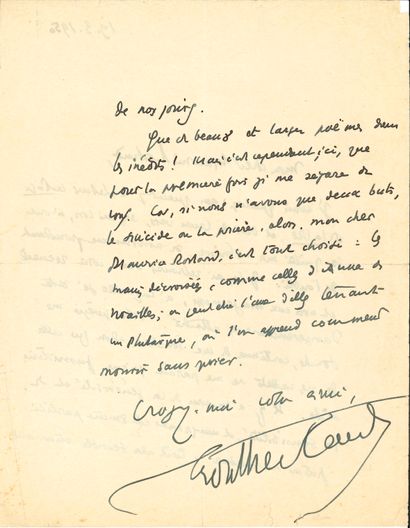 de nos jours.
Que de beaux et larges poèmes dans
les inédits ! Mais c'est cependant, ici, que
pour la première fois je me sépare de
vous. Car, si nous n'avons que deux buts,
le suicide ou la prière, alors, mon cher
Maurice Rostand, c'est tout choisi : les
mains décroisées, comme celles d'Anna de
Noailles, on peut-être l'une d'elles tenant
un Plutarque, où l'on apprend comment
mourir sans prier.
Croyez-moi votre ami,